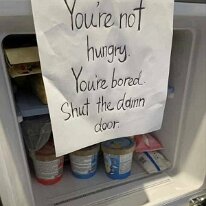 You're not
hungry.
You're bored.
Shut the damn
door.